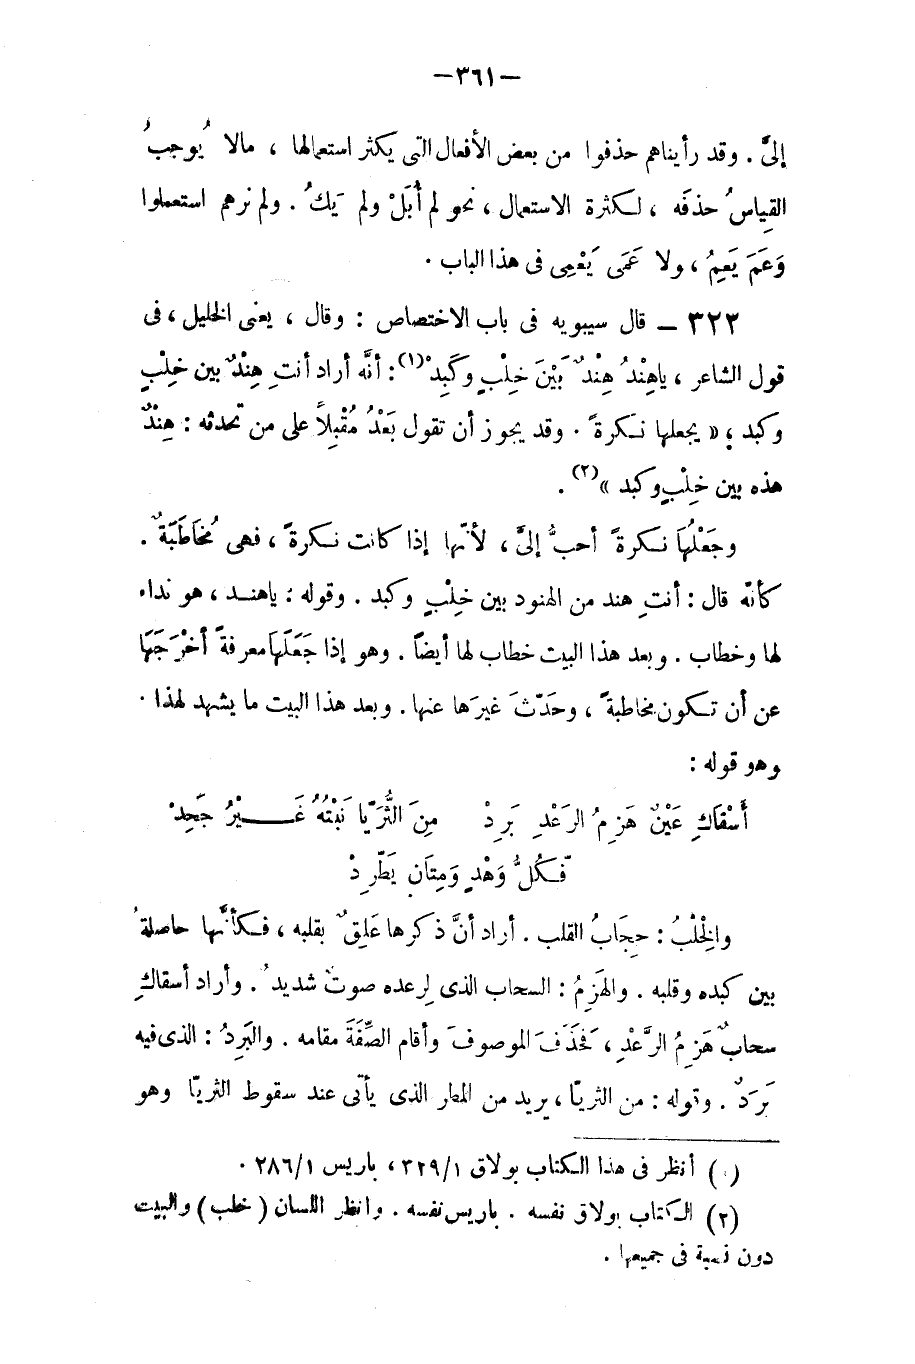 —٣٦١—
إلىَّ . وقد رأيناهم حذفوا من بعض الأفعال التى يكثر استعمالها ، مالا يُوجبُ
القياسُ حذفَه ، لـكثرة الاستعمال ، نحو لم أُبَلْ ولم يَكُ . ولم نرهم استعملوا
وَعَمَ يَعِمُ ، ولا عَمَى يَعْمِى فى هذا الباب .
٣٢٣ — قال سيبويه فى باب الاختصاص : وقال ، يعنى الخليل ، فى
قول الشاعر ، ياهِنْدُ هِنْدٌ بَيْنَ خِلْبٍ وكَبِدْ (١) : أنَّه أراد أنتِ هِنْدٌ بين خِلْبٍ
وكبد ، « يجعلها نـكرةً . وقد يجوز أن تقول بَعْدُ مُقْبِلاً على من تحدثه : هِنْدٌ
هذه بين خِلْبٍ وكبد » (٢) .
وجَعْلُهَا نـكرةً أحبُّ إلىَّ ، لأنّها إذا كانت نـكرةً ، فهى مُخَاطَبَةٌ .
كأنّه قال : أنتِ هند من الهنود بين خِلْبٍ وكبد . وقوله : ياهنـد ، هو نداء
لها وخطاب . وبعد هذا البيت خطاب لها أيضاً . وهو إذا جَعَلَهَا معرفةً أخْرَجَهَا
عن أن تـكون مخاطبةً ، وحَدّثَ غيرَها عنها . وبعد هذا البيت ما يشهد لهذا .
وهو قوله :
أَسْقَاكِ عَيْنٌ هَزِمُ الرَعْدِ بَرِدْ مِنَ الثُّرَيّا نَبْتُهُ غَـــيْرُ جَحِدْ
فَكُلُّ وَهْدٍ وَمِتَانٍ يَطّرِدْ
والخِلْبُ : حِجَابُ القلب . أراد أنَّ ذكرها عَلِقٌ بقلبه ، فـكأنَّها حاصلةٌ
بين كبده وقلبه . والهَزِمُ : السحاب الذى لِرعده صوتٌ شديدٌ . وأراد أسقاكِ
سحابٌ هَزِمُ الرَّعْدِ ، فحَذَفَ الموصوفَ وأقام الصِّفَةَ مقامه . والبَرِدُ : الذى فيه
بَرَدٌ . وقوله : من الثريّا ، يريد من المطر الذى يأتى عند سقوط الثريّا وهو
(١) أنظر فى هذا الـكتاب بولاق ٣٢٩/١ ، باريس ٢٨٦/١ .
(٢) الـكتاب بولاق نفسه . باريس نفسه . وانظر اللسان (خلب) والبيت
دون نسبة فى جميعها .